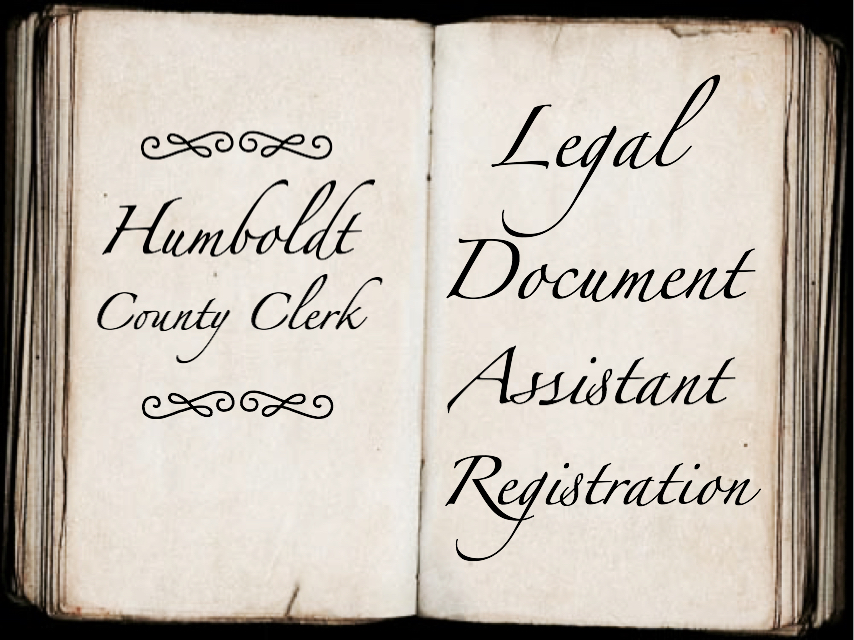 Humboldt
County Clerk
Legal
Document
Assistant
Registration